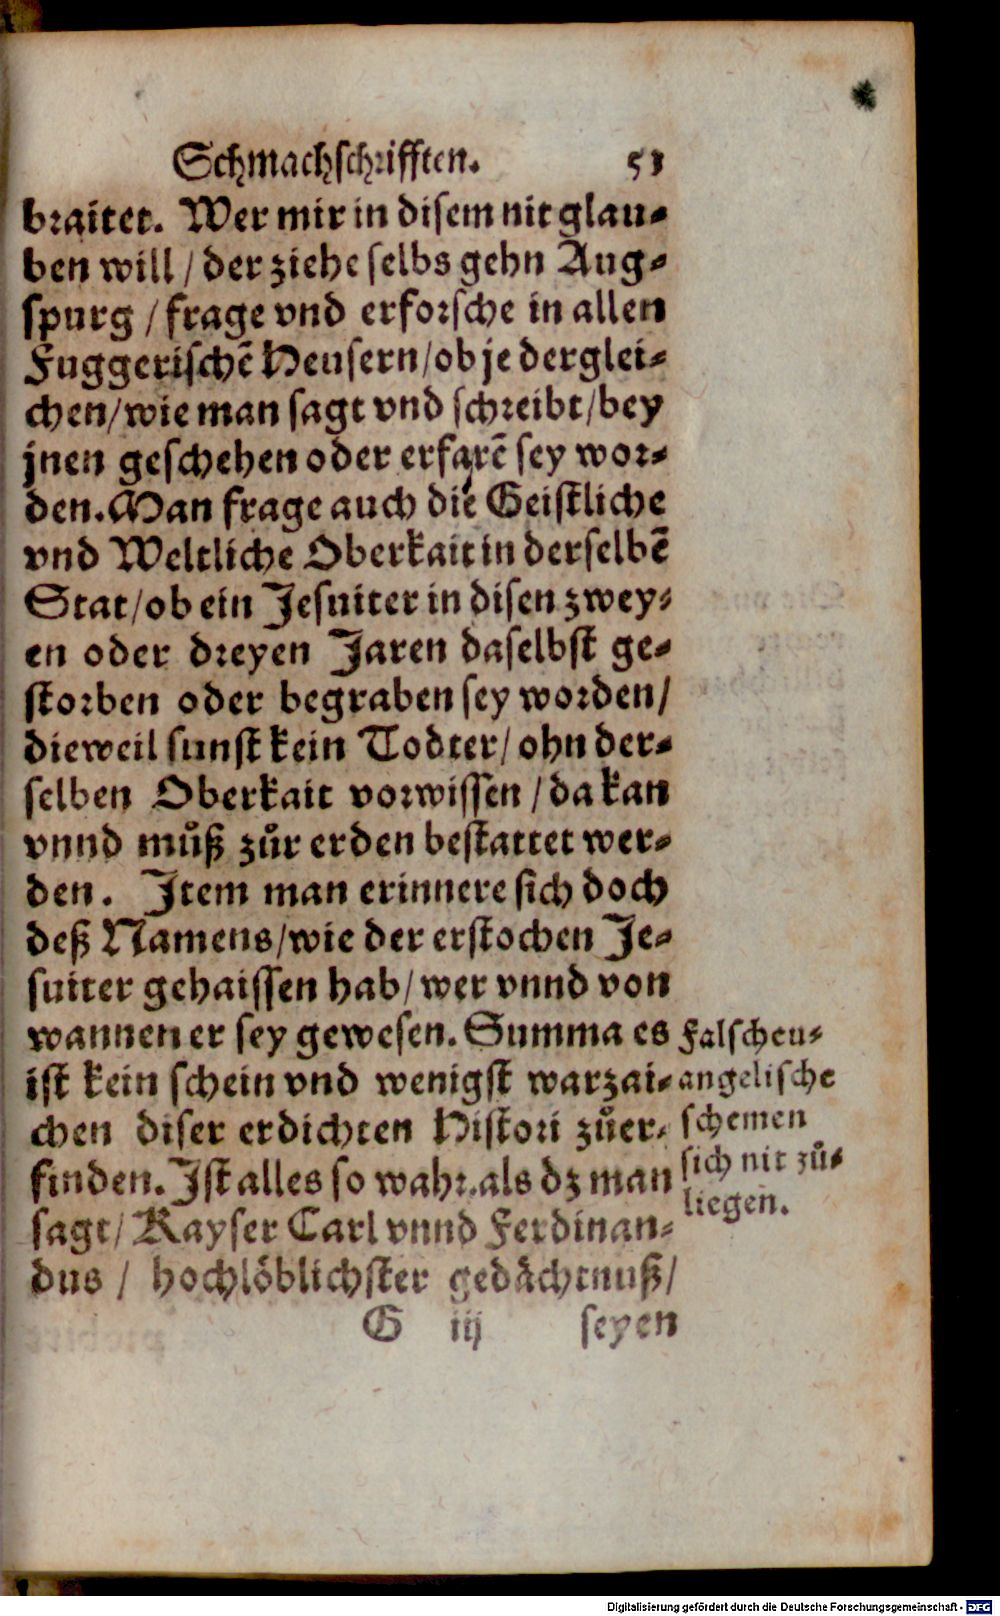 Schmachschrifften. 51
braitet. Wer mir in disem nit glau-
ben will / der ziehe selbs gehn Aug-
spurg / frage vnd erforsche in allen
Fuggerischē Heusern / ob je derglei-
chen / wie man sagt vnd schreibt / bey
jnen geschehen oder erfarē sey wor-
den. Man frage auch die Geistliche
vnd Weltliche Oberkait in derselbē
Stat / ob ein Jesuiter in disen zwey-
en oder dreyen Jaren daselbst ge-
storben oder begraben sey worden /
dieweil sunst kein Todter / ohn der-
selben Oberkait vorwissen / da kan
vnnd můß zůr erden bestattet wer-
den. Item man erinnere sich doch
deß Namens / wie der erstochen Je-
suiter gehaissen hab / wer vnnd von
wannen er sey gewesen. Summa es
ist kein schein vnd wenigst warzai-
chen diser erdichten Histori zůer-
finden. Ist alles so wahr. als dz man
sagt / Kayser Carl vnnd Ferdinan-
dus / hochlöblichster gedächtnuß /
G iij seyen
Falscheu-
angelische
schemen
sich nit zů-
liegen.
Digitalisierung gefördert durch die Deutsche Forschungsgemeinschaft - DFG